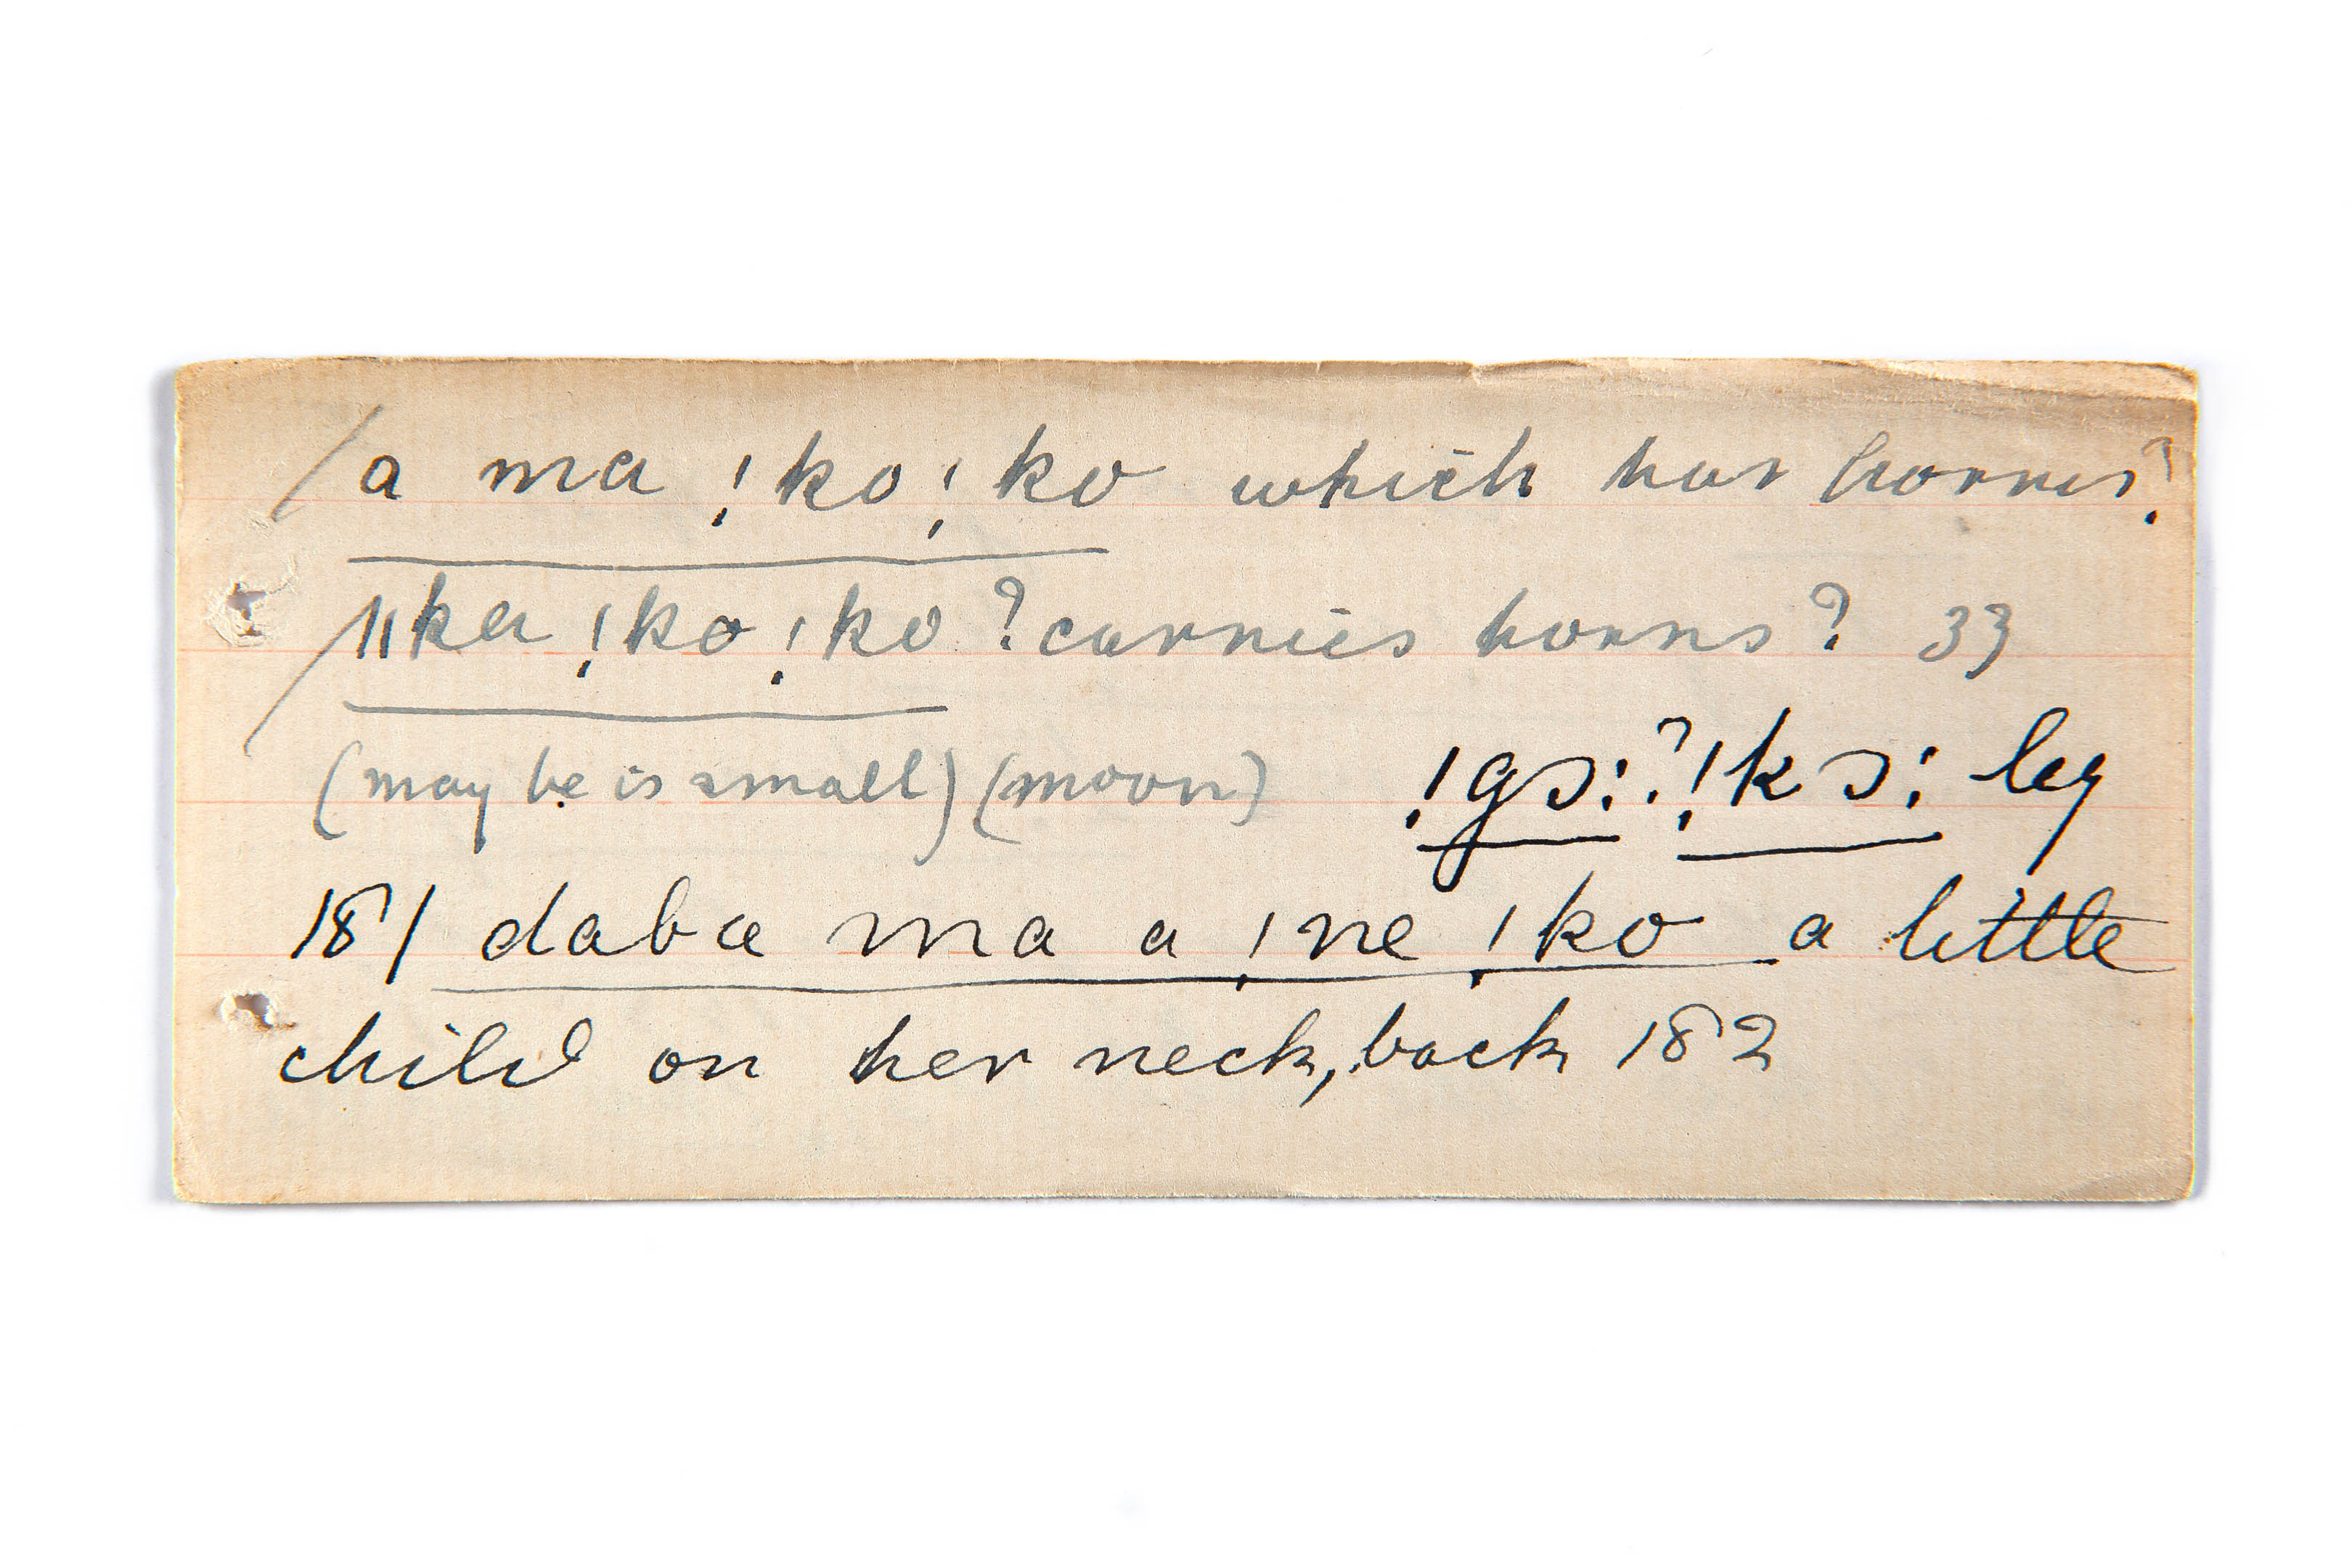 /a ma !ko!ko which has horns?
/ǁka !ko!ko? carries horns? 33
(may be is small) (moon) !gɔ:? !kɔ: leg
181 daba ma a !ne !ko a little
child on her neck, back 182